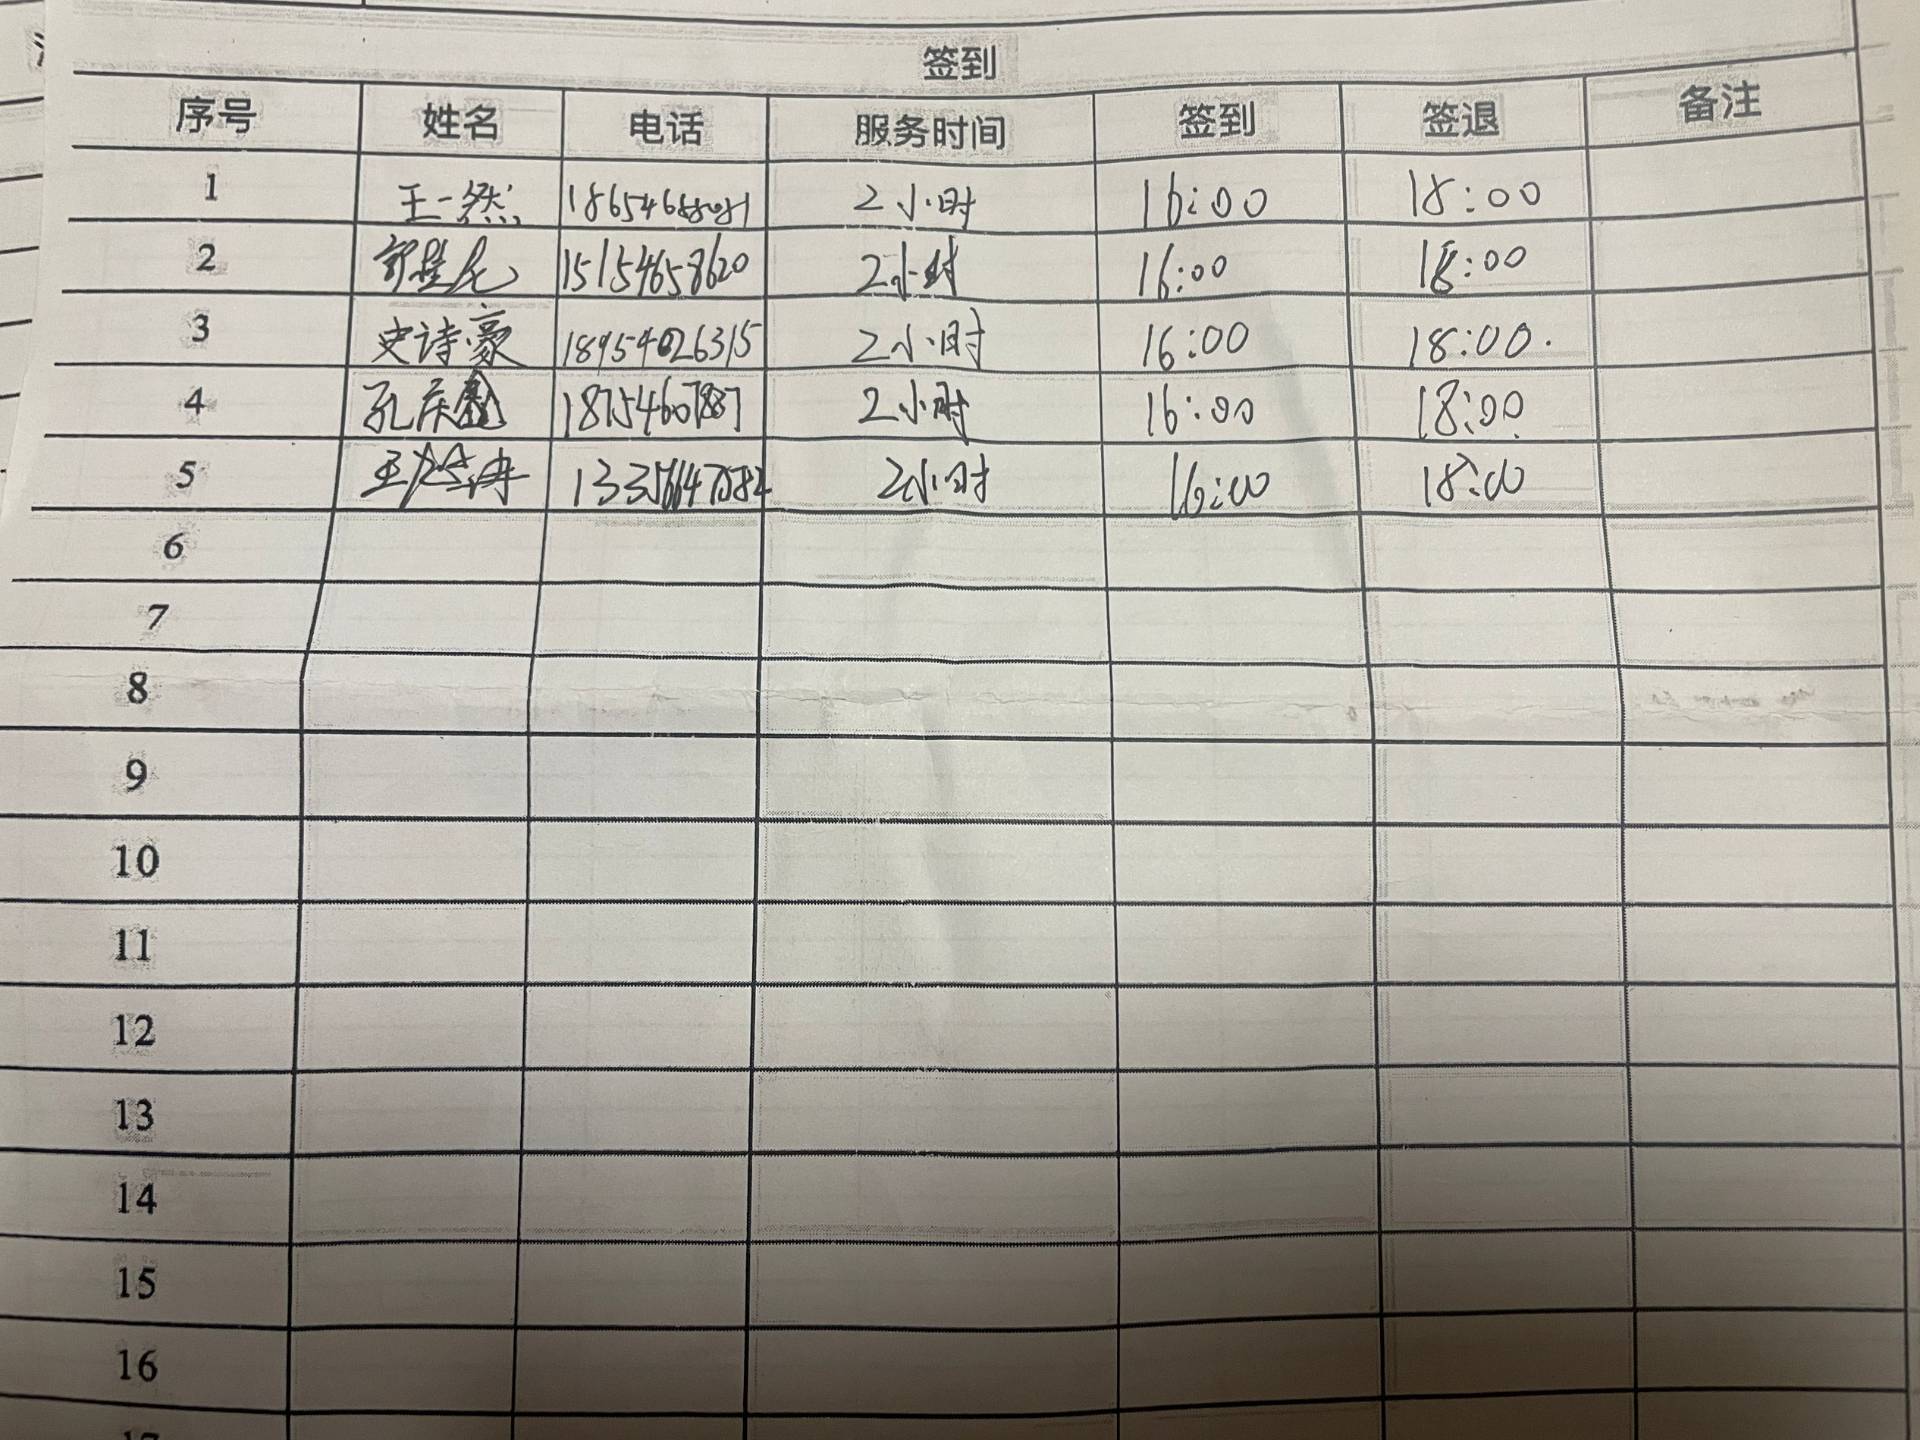 签到
序号 姓名 电话 服务时间 签到 签退 备注
1 王一然 2小时 16:00 18:00
2 15154658620 2小时 16:00 18:00
3 史诗豪 18954026315 2小时 16:00 18:00.
4 孔庆 18754607887 2小时 16:00 18:00
5 2小时 16:00 18:00
6
7
8
9
10
11
12
13
14
15
16
17